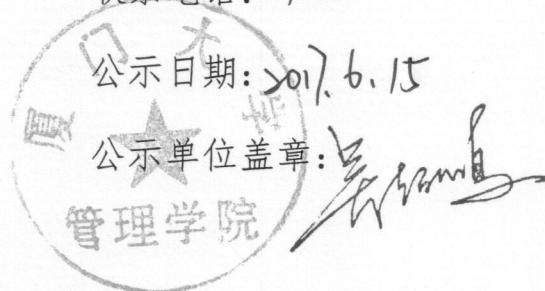 电话:
公示日期:2017.6.15
公示单位盖章:
厦门大学
管理学院